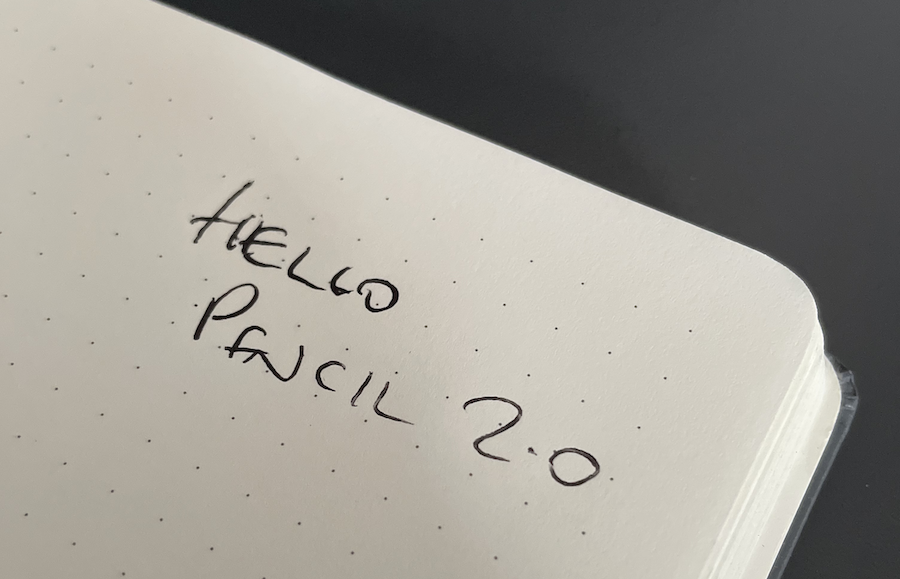 HELLO
PENCIL 2.0